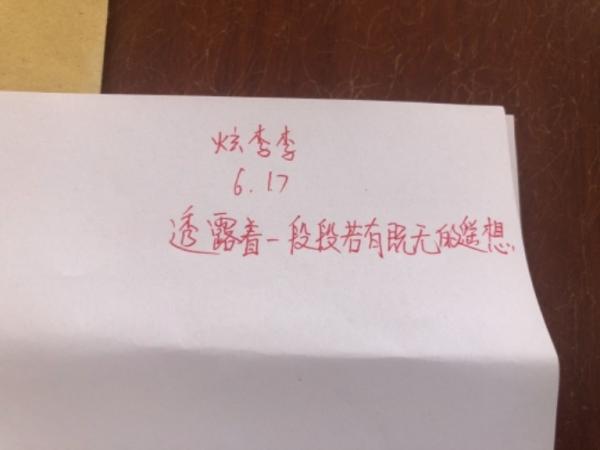 炫李李
6.17
透露着一段段若有既无的遥想